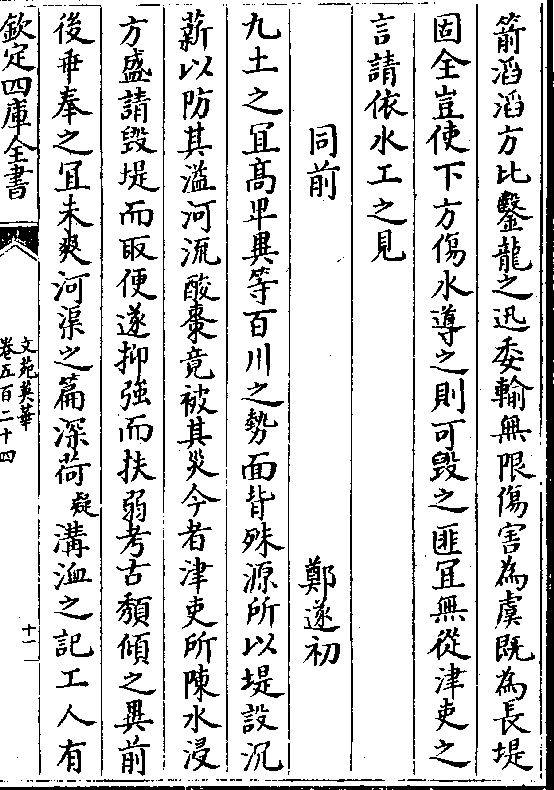 箭滔滔方比鑿龍之迅委輸無限傷害為虞既為長堤
固全豈使下方傷水導之則可毀之匪冝無從津吏之
言請依水工之見
同前　鄭遂初
九土之冝髙卑異等百川之勢面背殊源所以堤設沉
薪以防其濫河流酸棗竟被其災今者津吏所陳水浸
方盛請毀堤而取便遂抑強而扶弱考古頽傾之異前
後垂奉之冝未爽河渠之篇深荷疑溝洫之記工人有
欽定四庫全書
文苑英華
卷五百二十四
十一